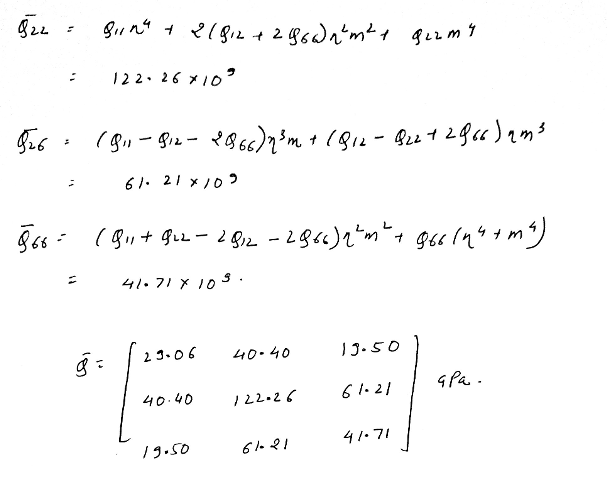 Q̄22 = Q11 n⁴ + 2(Q12 + 2Q66)n²m² + Q22 m⁴
= 122.26 × 10⁹
Q̄26 = (Q11 − Q12 − 2Q66)n³m + (Q12 − Q22 + 2Q66)nm³
= 61.21 × 10⁹
Q̄66 = (Q11 + Q22 − 2Q12 − 2Q66)n²m² + Q66(n⁴ + m⁴)
= 41.71 × 10⁹.
Q̄ = [ 29.06 40.40 19.50
40.40 122.26 61.21
19.50 61.21 41.71 ] GPa.